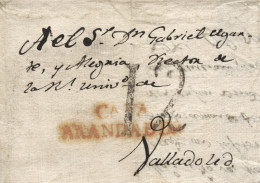 A el S.r D.n Gabriel Ugar
te, y Alegria Rector de
la R.l univ.d de
12
CAZA
ARANDA
Valladolid.